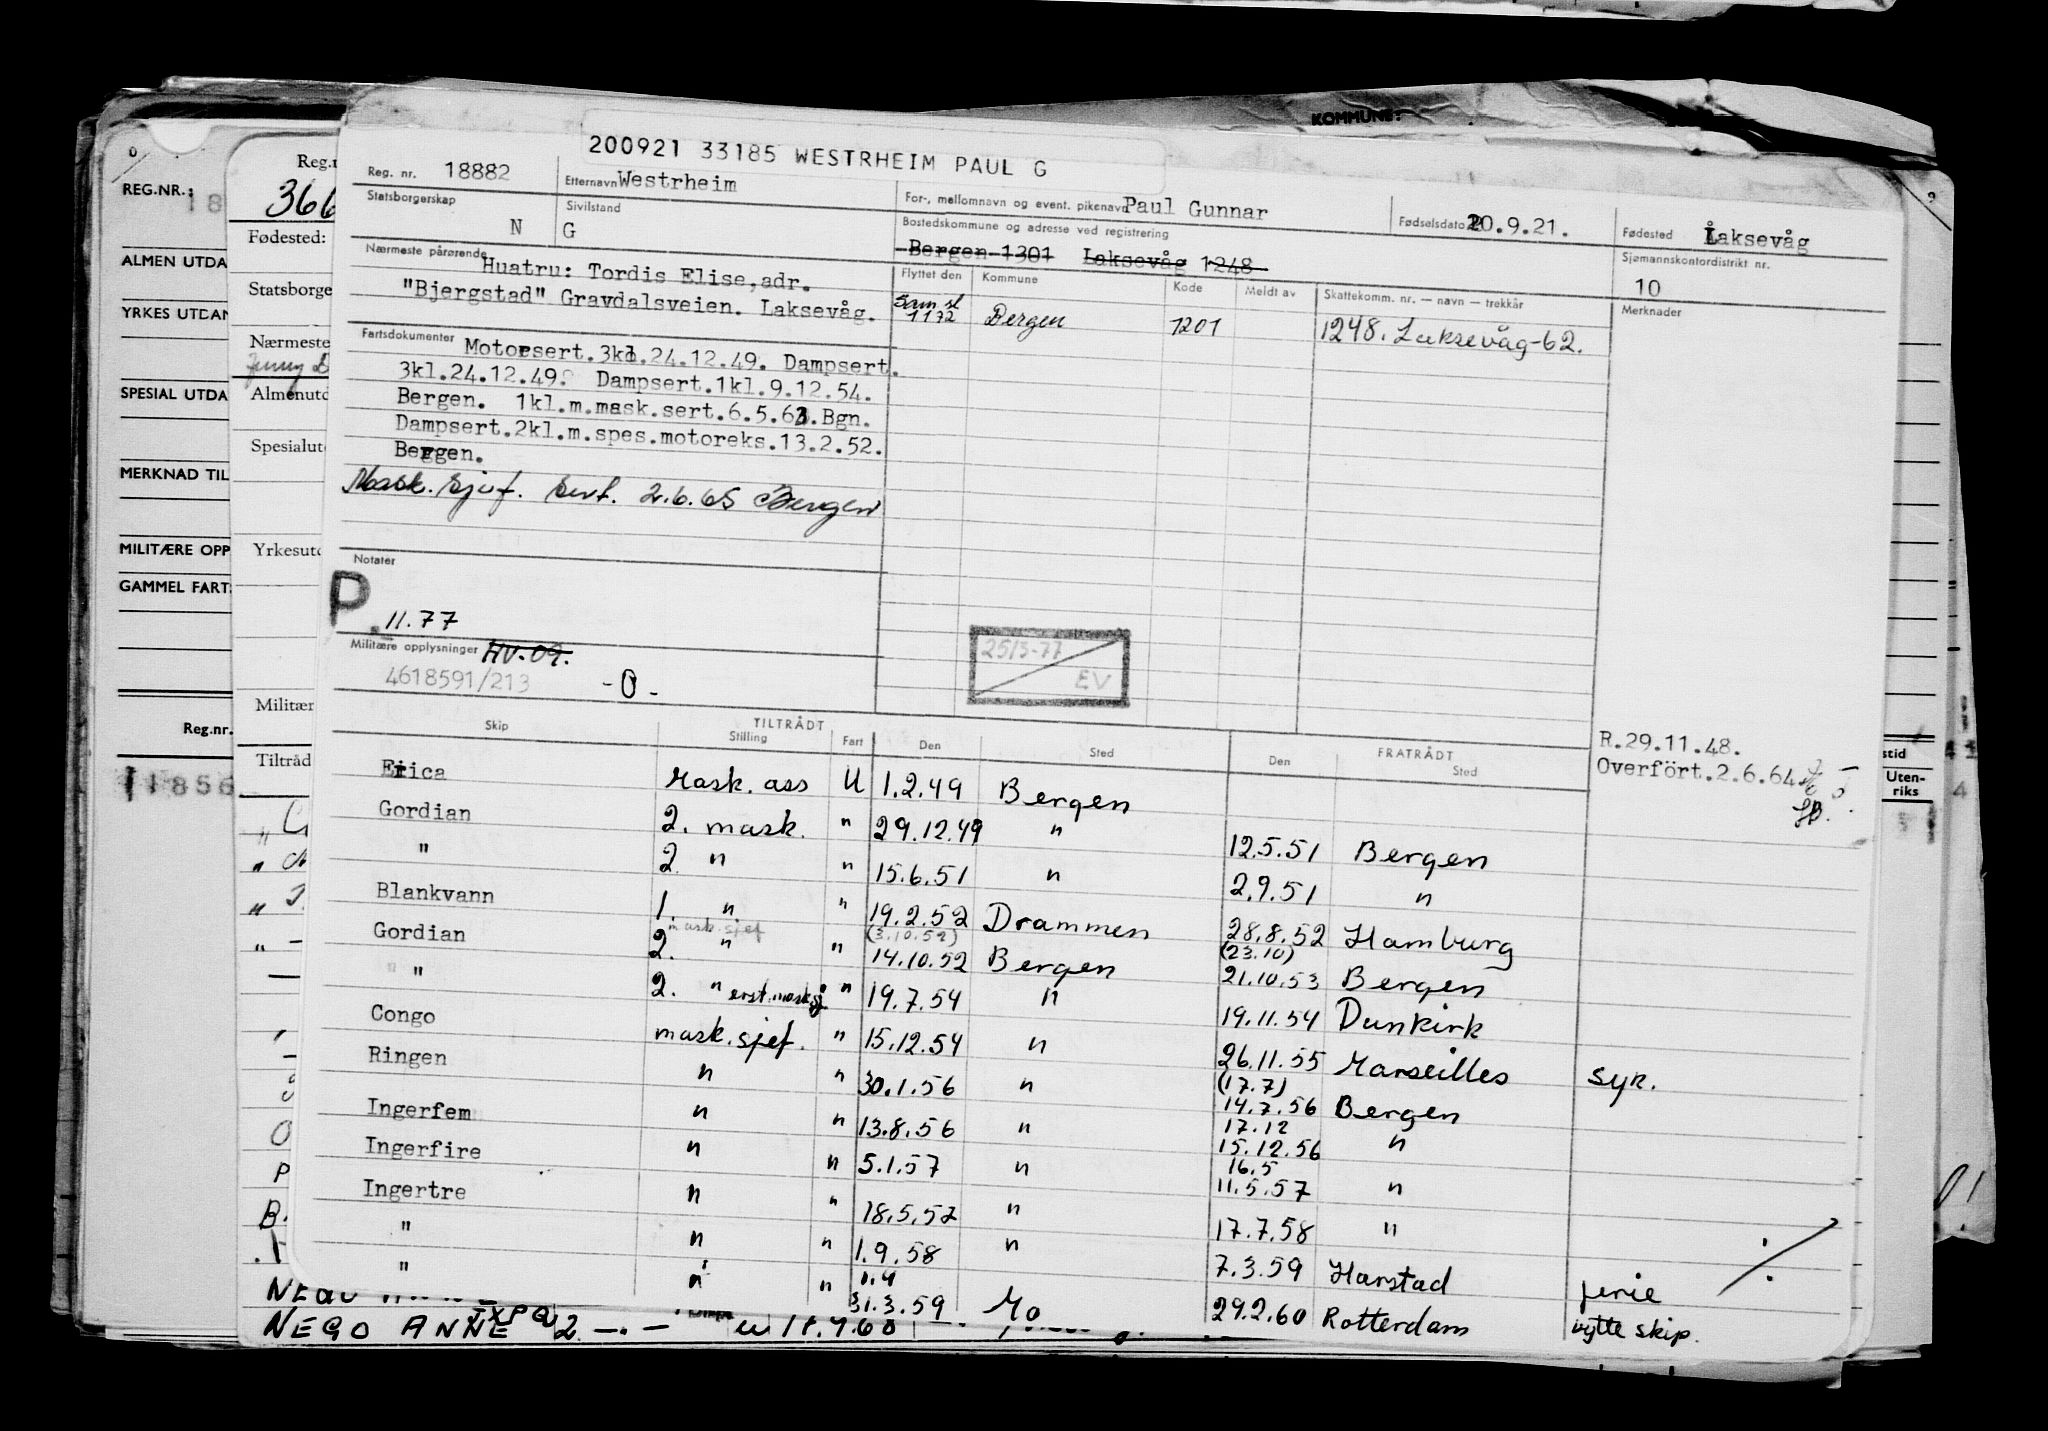 KOMMUNE:
200921 33185 WESTRHEIM PAUL G
Reg. nr. 18882 Etternavn Westrheim For-, mellomnavn og event. pikenavn Paul Gunnar Fødselsdato 20.9.21. Fødested Laksevåg
Statsborgerskap N Sivilstand G Bostedskommune og adresse ved registrering Bergen 1301 Laksevåg 1248 Sjømannskontordistrikt nr. 10
Nærmeste pårørende Huatru: Tordis Elise, adr.
"Bjergstad" Gravdalsveien. Laksevåg.
Flyttet den Kommune Kode Meldt av Skattekomm. nr. — navn — trekkår Merknader
Sam.sl
1172 Bergen 1201 1248. Laksevåg-62.
Fartsdokumenter Motorsert.3kl.24.12.49. Dampsert.
3kl.24.12.49. Dampsert.1kl.9.12.54.
Bergen. 1kl.m.mask.sert.6.5.63.Bgn.
Dampsert.2kl.m.spes.motoreks.13.2.52.
Bergen.
Mask. Sjef. Sert. 2.6.65 Bergen
Notater
P
11.77
Militære opplysninger HV-09.
4618591/213 -0-
25/3-77
EV
R.29.11.48.
Overfört.2.6.64
Skip TILTRÅDT FRATRÅDT
Stilling Fart Den Sted Den Sted
Erica Mask. ass U 1.2.49 Bergen
Gordian 2. mask. " 29.12.49 " 12.5.51 Bergen
" 2. " " 15.6.51 " 2.9.51 "
Blankvann 1. " " 19.2.52 Drammen 28.8.52 Hamburg
mask.sjef (3.10.52) (23.10)
Gordian 2. " " 14.10.52 Bergen 21.10.53 Bergen
" 2. " erst.masksj " 19.7.54 " 19.11.54 Dunkirk
Congo mask.sjef. " 15.12.54 " 26.11.55 Marseilles syk.
(17.7)
Ringen " " 30.1.56 " 14.7.56 Bergen
17.12
Ingerfem " " 13.8.56 " 15.12.56 "
16.5
Ingerfire " " 5.1.57 " 11.5.57 "
Ingertre " " 18.5.57 " 17.7.58 "
" " " 1.9.58 " 7.3.59 Harstad ferie
1.4
" " " 31.3.59 Mo 29.2.60 Rotterdam bytte skip.
REG.NR.:
ALMEN UTDA
YRKES UTDAN
SPESIAL UTDA
MERKNAD TIL
MILITÆRE OPP
GAMMEL FART
Reg.nr.
1856
366
Fødested:
Statsborge
Nærmeste
Jenny
Almenutd
Spesialut
Yrkesutd
Militær
Tiltråd
NEGO ANNE
stid
Uten-
riks